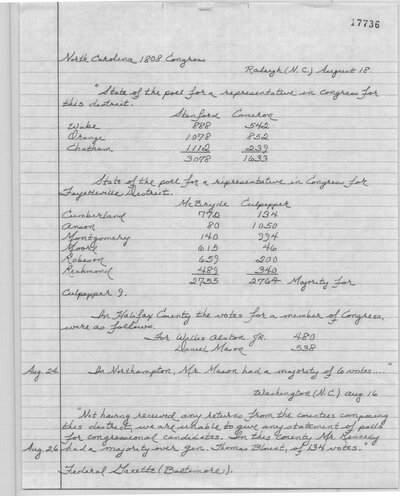 17736
North Carolina 1808 Congress
Raleigh (N.C.) August 18.
"State of the poll for a representative in Congress for
this district.
Stanford Cameron
Wake 888 542
Orange 1078 852
Chatham 1112 239
3078 1633
State of the poll for a representative in Congress for
Fayetteville District.
McBryde Culpepper
Cumberland 772 134
Anson 80 1050
Montgomery 140 994
Moore 615 46
Robeson 659 200
Richmond 489 340
2755 2764 Majority for
Culpepper 9.
In Halifax County the votes for a member of Congress,
were as follows.
For Willis Alston Jr. 480
Daniel Mason 538
Aug. 24 In Northampton, Mr. Mason had a majority of 6 votes...."
Washington (N.C.) Aug. 16
"Not having received any returns from the counties composing
this district, we are unable to give any statement of polls
for congressional candidates. In this County Mr. Kennedy
Aug. 26 had a majority over Gen. Thomas Blount, of 134 votes."
Federal Gazette (Baltimore).